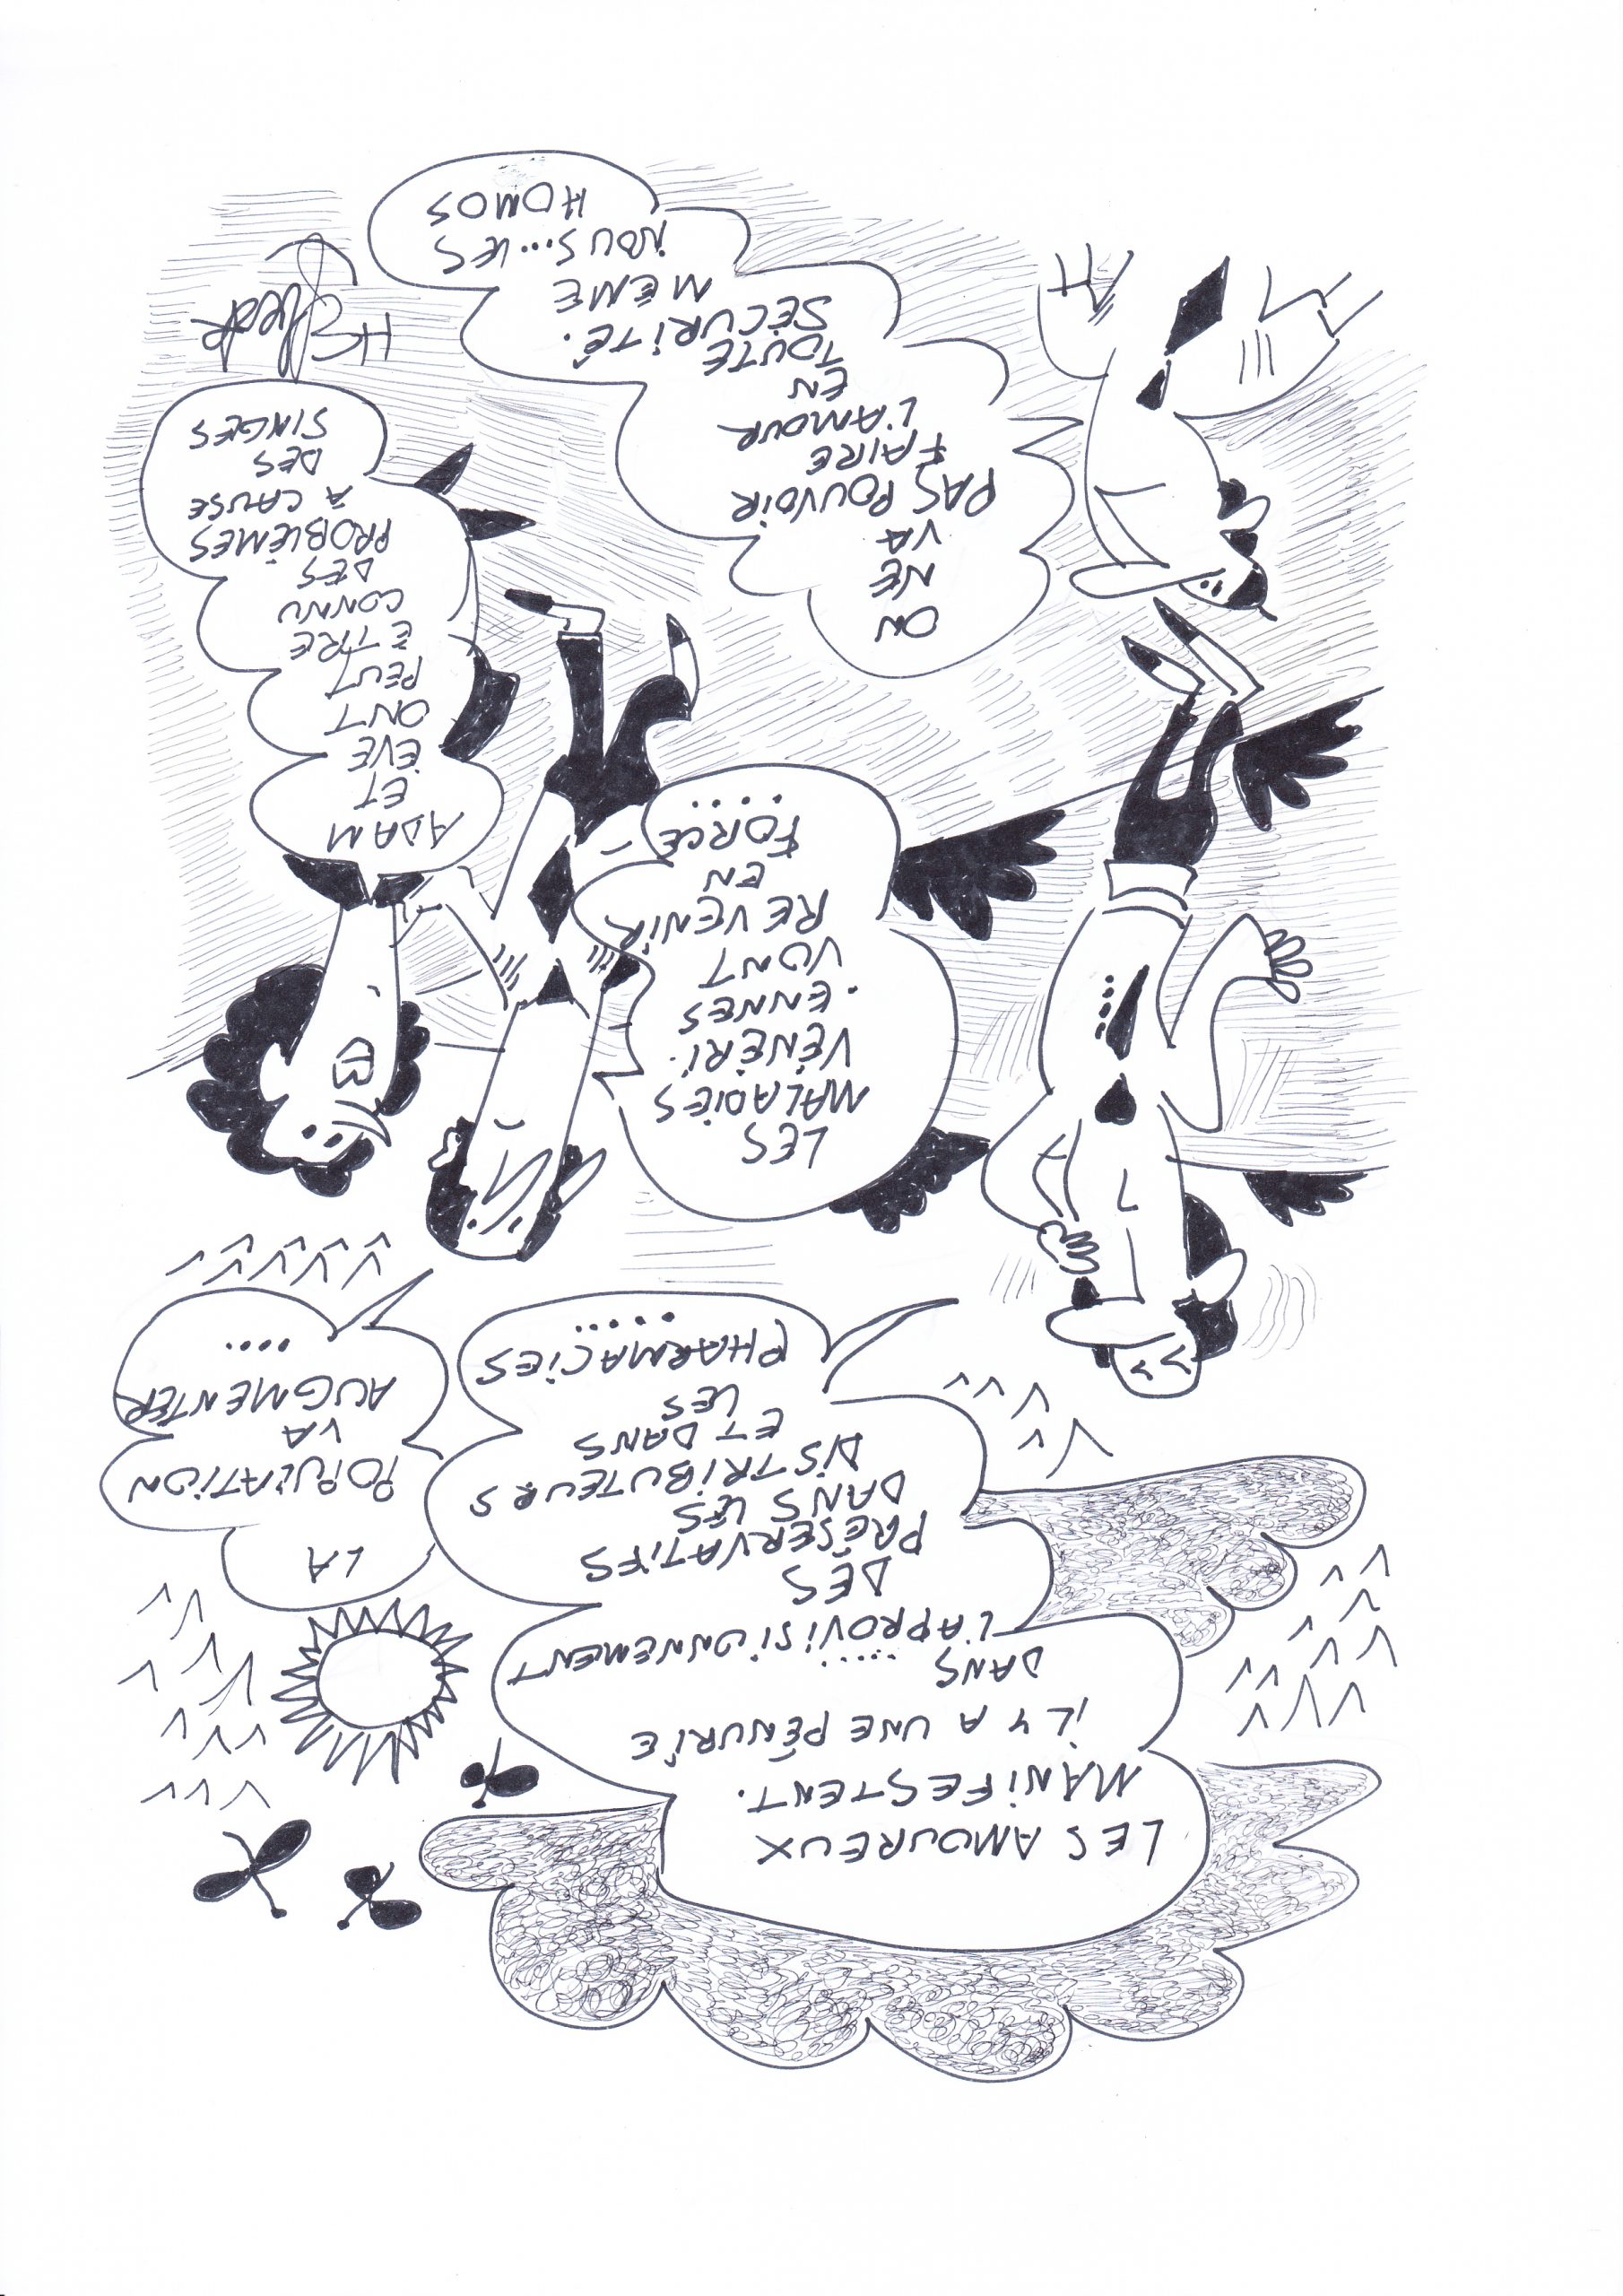 LES AMOUREUX
MANIFESTENT.
iL Y A UNE PÉNURiE
DANS ......
L'APROViSiONNEMENT
DES
PRÉSERVATiFS
DANS LES
DiSTRiBUTEURS
ET DANS
LES
PHARMACiES
......
LA
POPULATiON
VA
AUGMENTER
....
LES
MALADiES
VÉNÉRi.
.ENNES
VONT
REVENiR
EN
FORCE
....
ADAM
ET
ÈVE
ONT
PEUT
ÊTRE
CONNU
DES
PROBLÈMES
À CAUSE
DES
SiNGES
ON
NE
VA
PAS POUVOiR
FAiRE
L'AMOUR
EN
TOUTE
SÉCURiTÉ.
MÊME
NOUS...LES
HOMOS